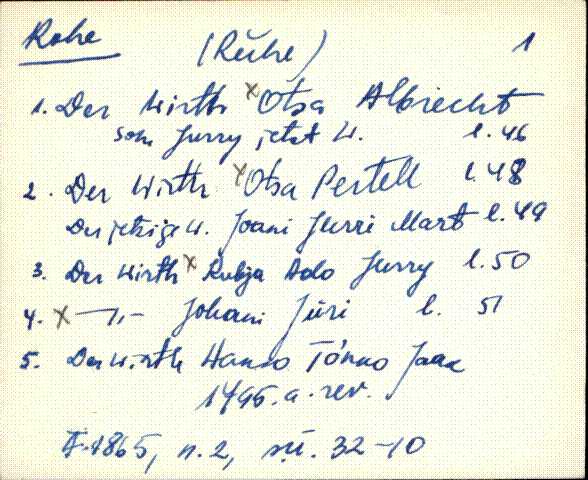 Rohe (Rühe) 1
1. Der Wirth x Otsa Albrecht
Sohn Jurry jetzt W. l. 46
2. Der Wirth x Otsa Pertell l. 48
Der jetzige W. Joani Jurri Mart l. 49
3. Der Wirth x Rubja Ado Jurry l. 50
4. x —„— Johani Jüri l. 51
5. Der Wirth Hanso Tönno Jaak
1795. a. rev.
F. 1865, n. 2, sü. 32-10